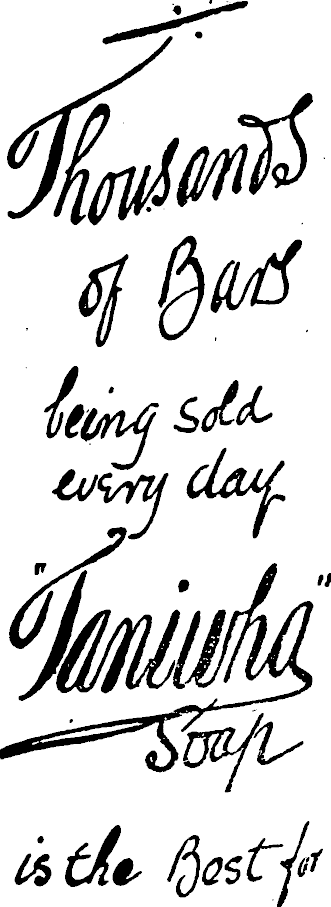 Thousands
of Bars
being sold
every day
"Taniwha"
Soap
is the Best for